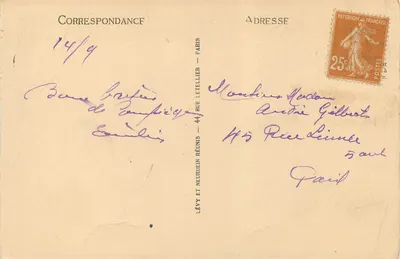 CORRESPONDANCE
14/9
Bons baisers
de Compiègne
ADRESSE
RÉPUBLIQUE FRANÇAISE
25c
POSTES
LÉVY ET NEURDEIN RÉUNIS - 44, RUE LETELLIER - PARIS
Monsieur Madame
André Gilbert
45 Rue Linnée
Paris